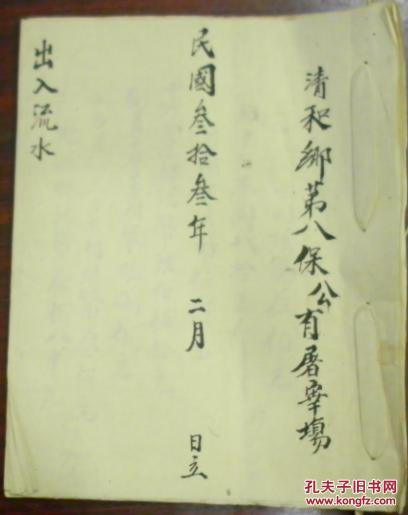 清和鄉第八保公有屠宰場
民國叁拾叁年 二月 日立
出入流水
孔夫子旧书网
KONGFZ.COM